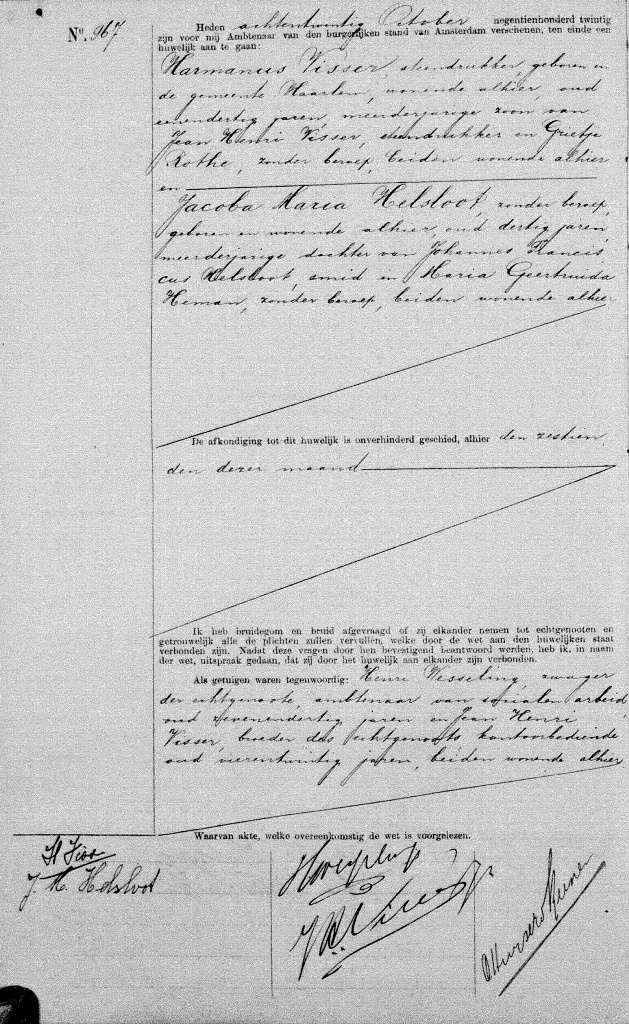 Nº. 967
Heden achtentwintig October negentienhonderd twintig
zijn voor mij Ambtenaar van den burgerlijken stand van Amsterdam verschenen, ten einde een
huwelijk aan te gaan:
Harmanus Visser, steendrukker, geboren in
de gemeente Haarlem, wonende alhier, oud
eenendertig jaren, meerderjarige zoon van
Jean Henri Visser, steendrukker en Grietje
Rothe, zonder beroep, beiden wonende alhier
en
Jacoba Maria Helsloot, zonder beroep,
geboren en wonende alhier, oud dertig jaren,
meerderjarige dochter van Johannes Francis
cus Helsloot, smid en Maria Geertruida
Heman, zonder beroep, beiden wonende alhier
De afkondiging tot dit huwelijk is onverhinderd geschied, alhier den zestien
den dezer maand
Ik heb bruidegom en bruid afgevraagd of zij elkander nemen tot echtgenooten en
getrouwelijk alle de plichten zullen vervullen, welke door de wet aan den huwelijken staat
verbonden zijn. Nadat deze vragen door hen bevestigend beantwoord werden, heb ik, in naam
der wet, uitspraak gedaan, dat zij door het huwelijk aan elkander zijn verbonden.
Als getuigen waren tegenwoordig: Henri Wesseling, zwager
der echtgenoote, ambtenaar van socialen arbeid
oud zevenendertig jaren en Jean Henri
Visser, broeder des echtgenoots, kantoorbediende
oud vierentwintig jaren, beiden wonende alhier
Waarvan akte, welke overeenkomstig de wet is voorgelezen.
H Visser
J. M. Helsloot